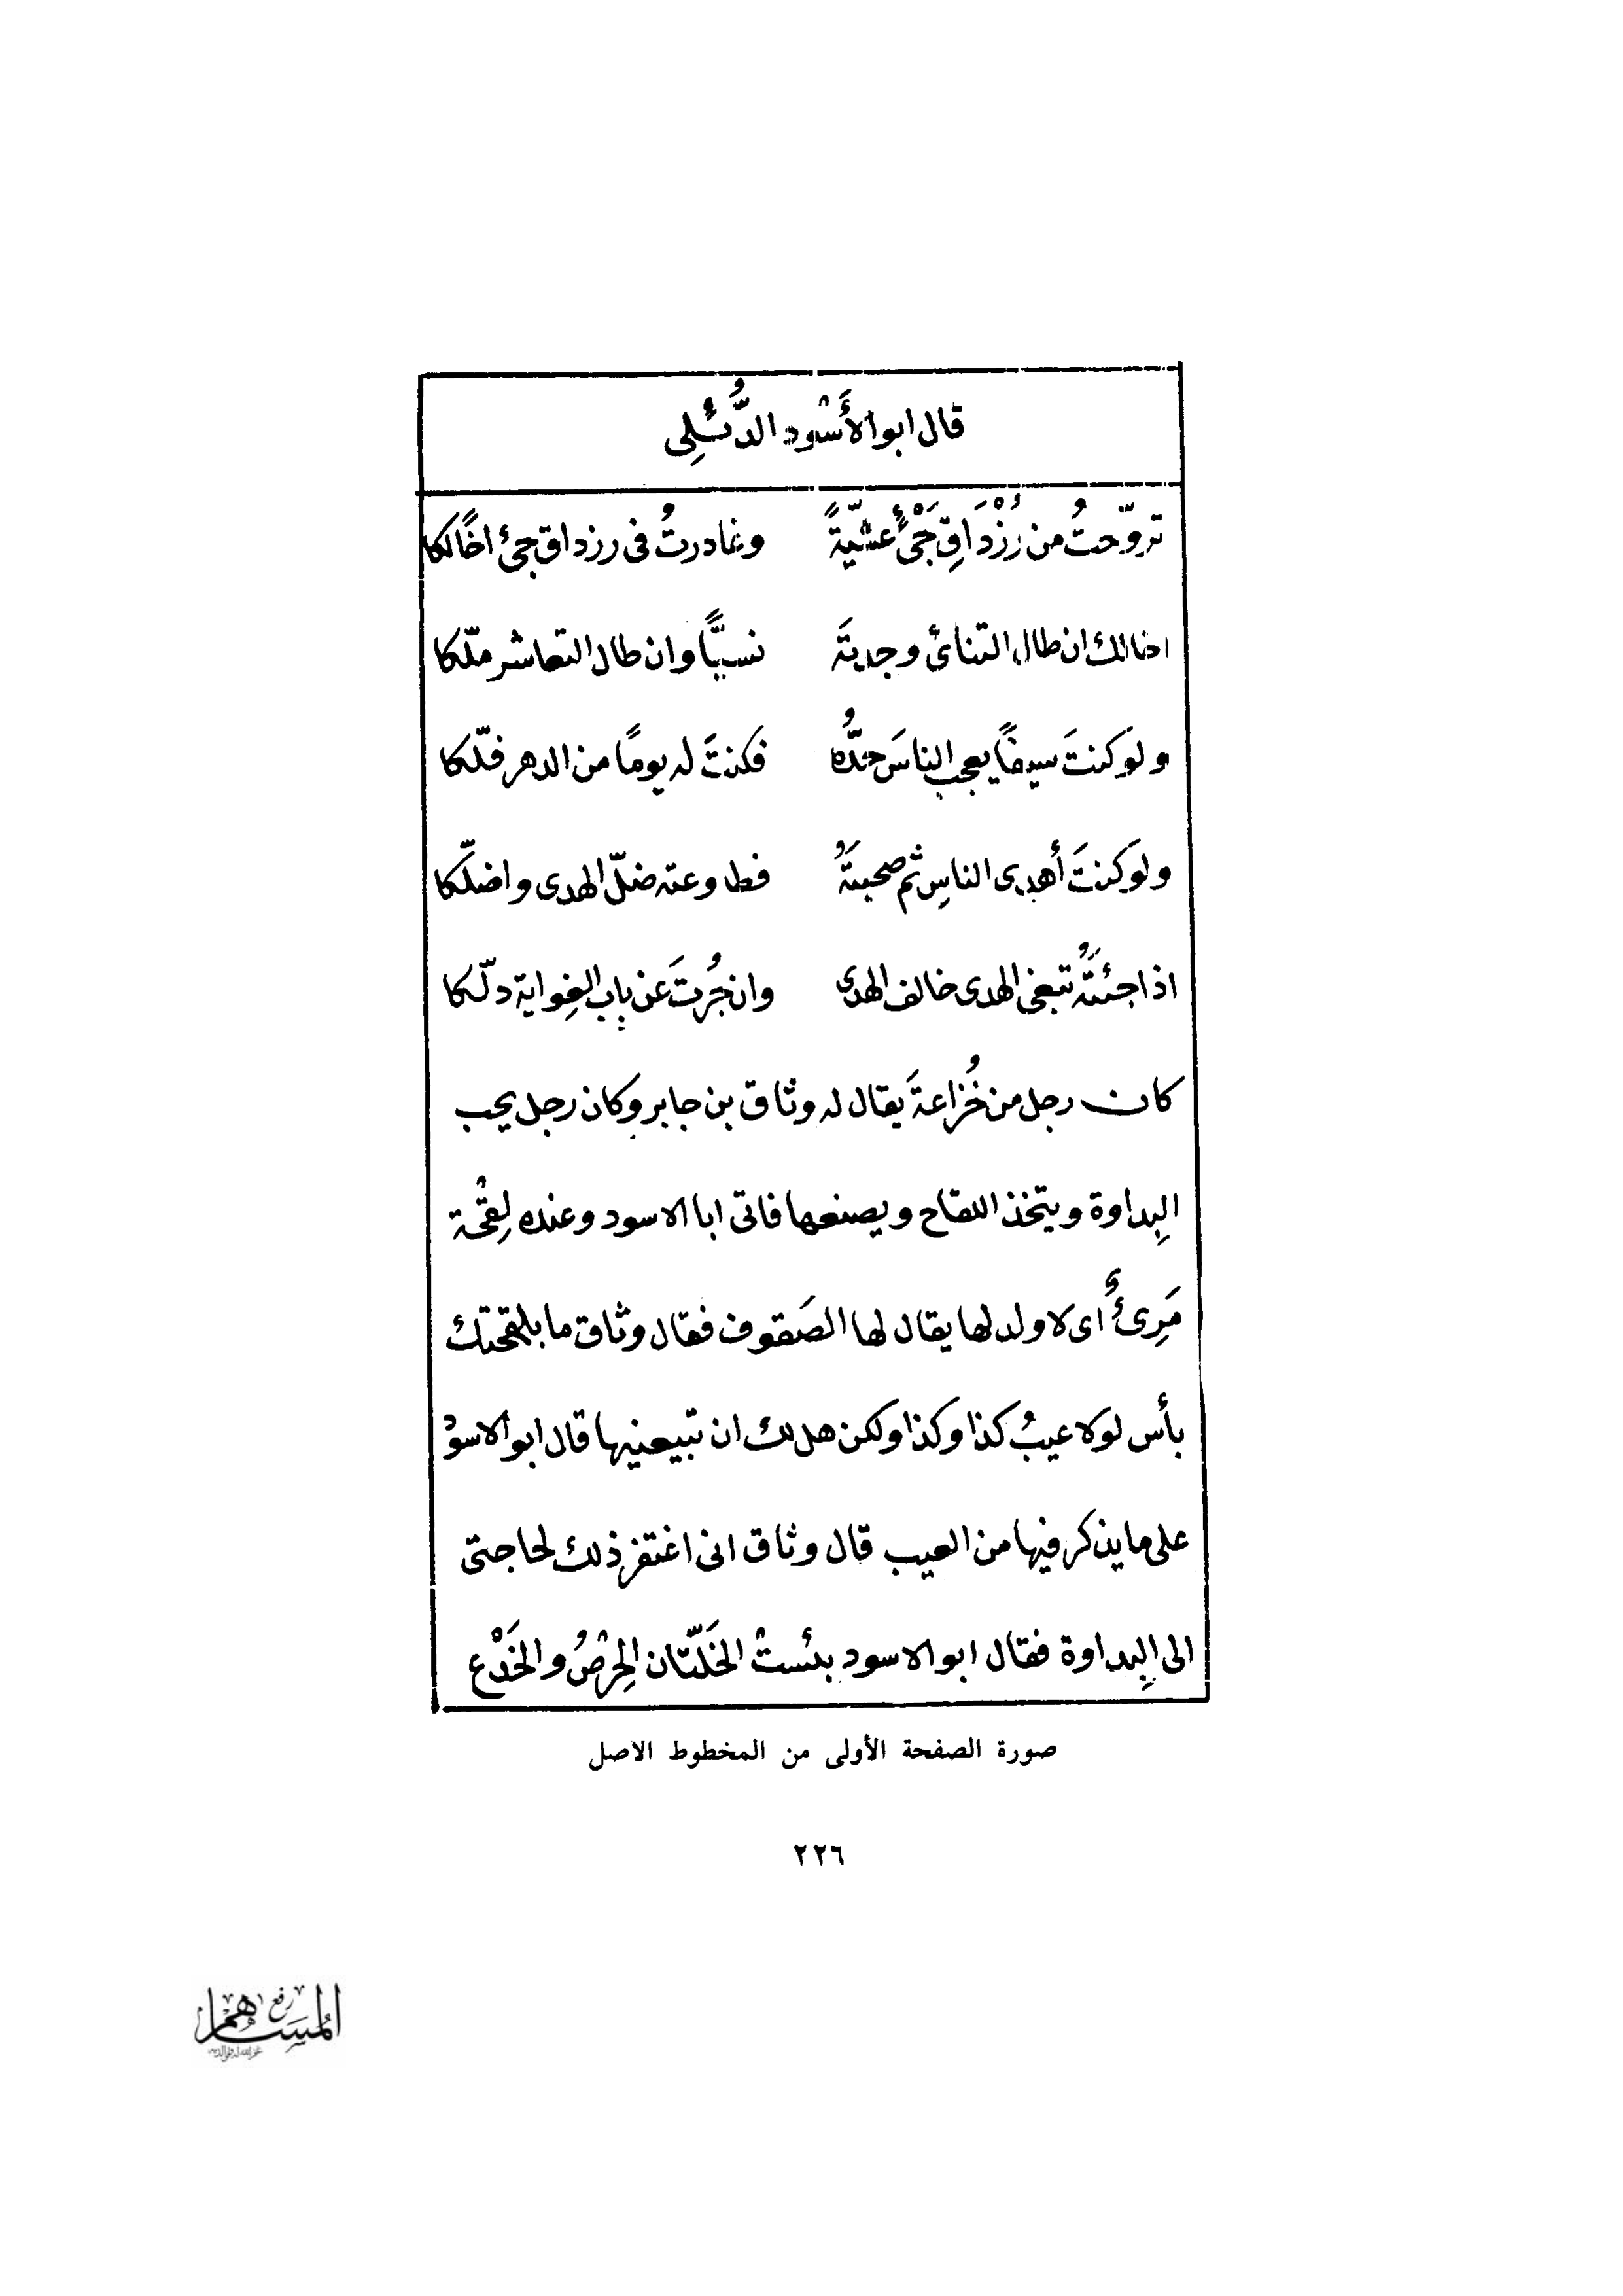 قال ابو الأَسْود الدُّئَلِى
تروّحتُ من رُزْدَاقِ جَىْءٍ عشيّةً وغادرتُ فى رزداق جئ اخًا لكا
اخا لك ان طال التنائى وجدتَه نسيًّا وان طال التعاشر ملّكا
ولو كنتَ سيفًا يعجب الناسَ حدُّه فكنتَ له يومًا من الدهر فلّكا
ولو كنتَ أهدى الناسِ ثم صحبتَهُ فطاوعته ضلّ الهدى واضلّكا
اذا جئتَهُ تبغى الهدى خالف الهدى وان جُرتَ عن باب الغِواية دلّكا
كان رجل من خُزاعةَ يقال له وثاق بن جابر وكان رجل يحب
البِداوة ويتخذ اللقاح ويصنعها فاتى ابا الاسود وعنده لِقْحة
مَرِىءٌ اى لا ولد لها يقال لها الصَفوف فقال وثاق ما بلقحتك
بأس لولا عيبُ كذا وكذا ولكن هل لك ان تبيعنيها قال ابو الاسود
على ما يذكر فيها من العيب قال وثاق انى اغتفر ذلك لحاجتى
الى البِداوة فقال ابو الاسود بئستْ الخَلّتان الحِرْصُ والخَدْع
صورة الصفحة الأولى من المخطوط الاصل
٢٢٦
رفع
المساهم
غفر الله له ولوالديه